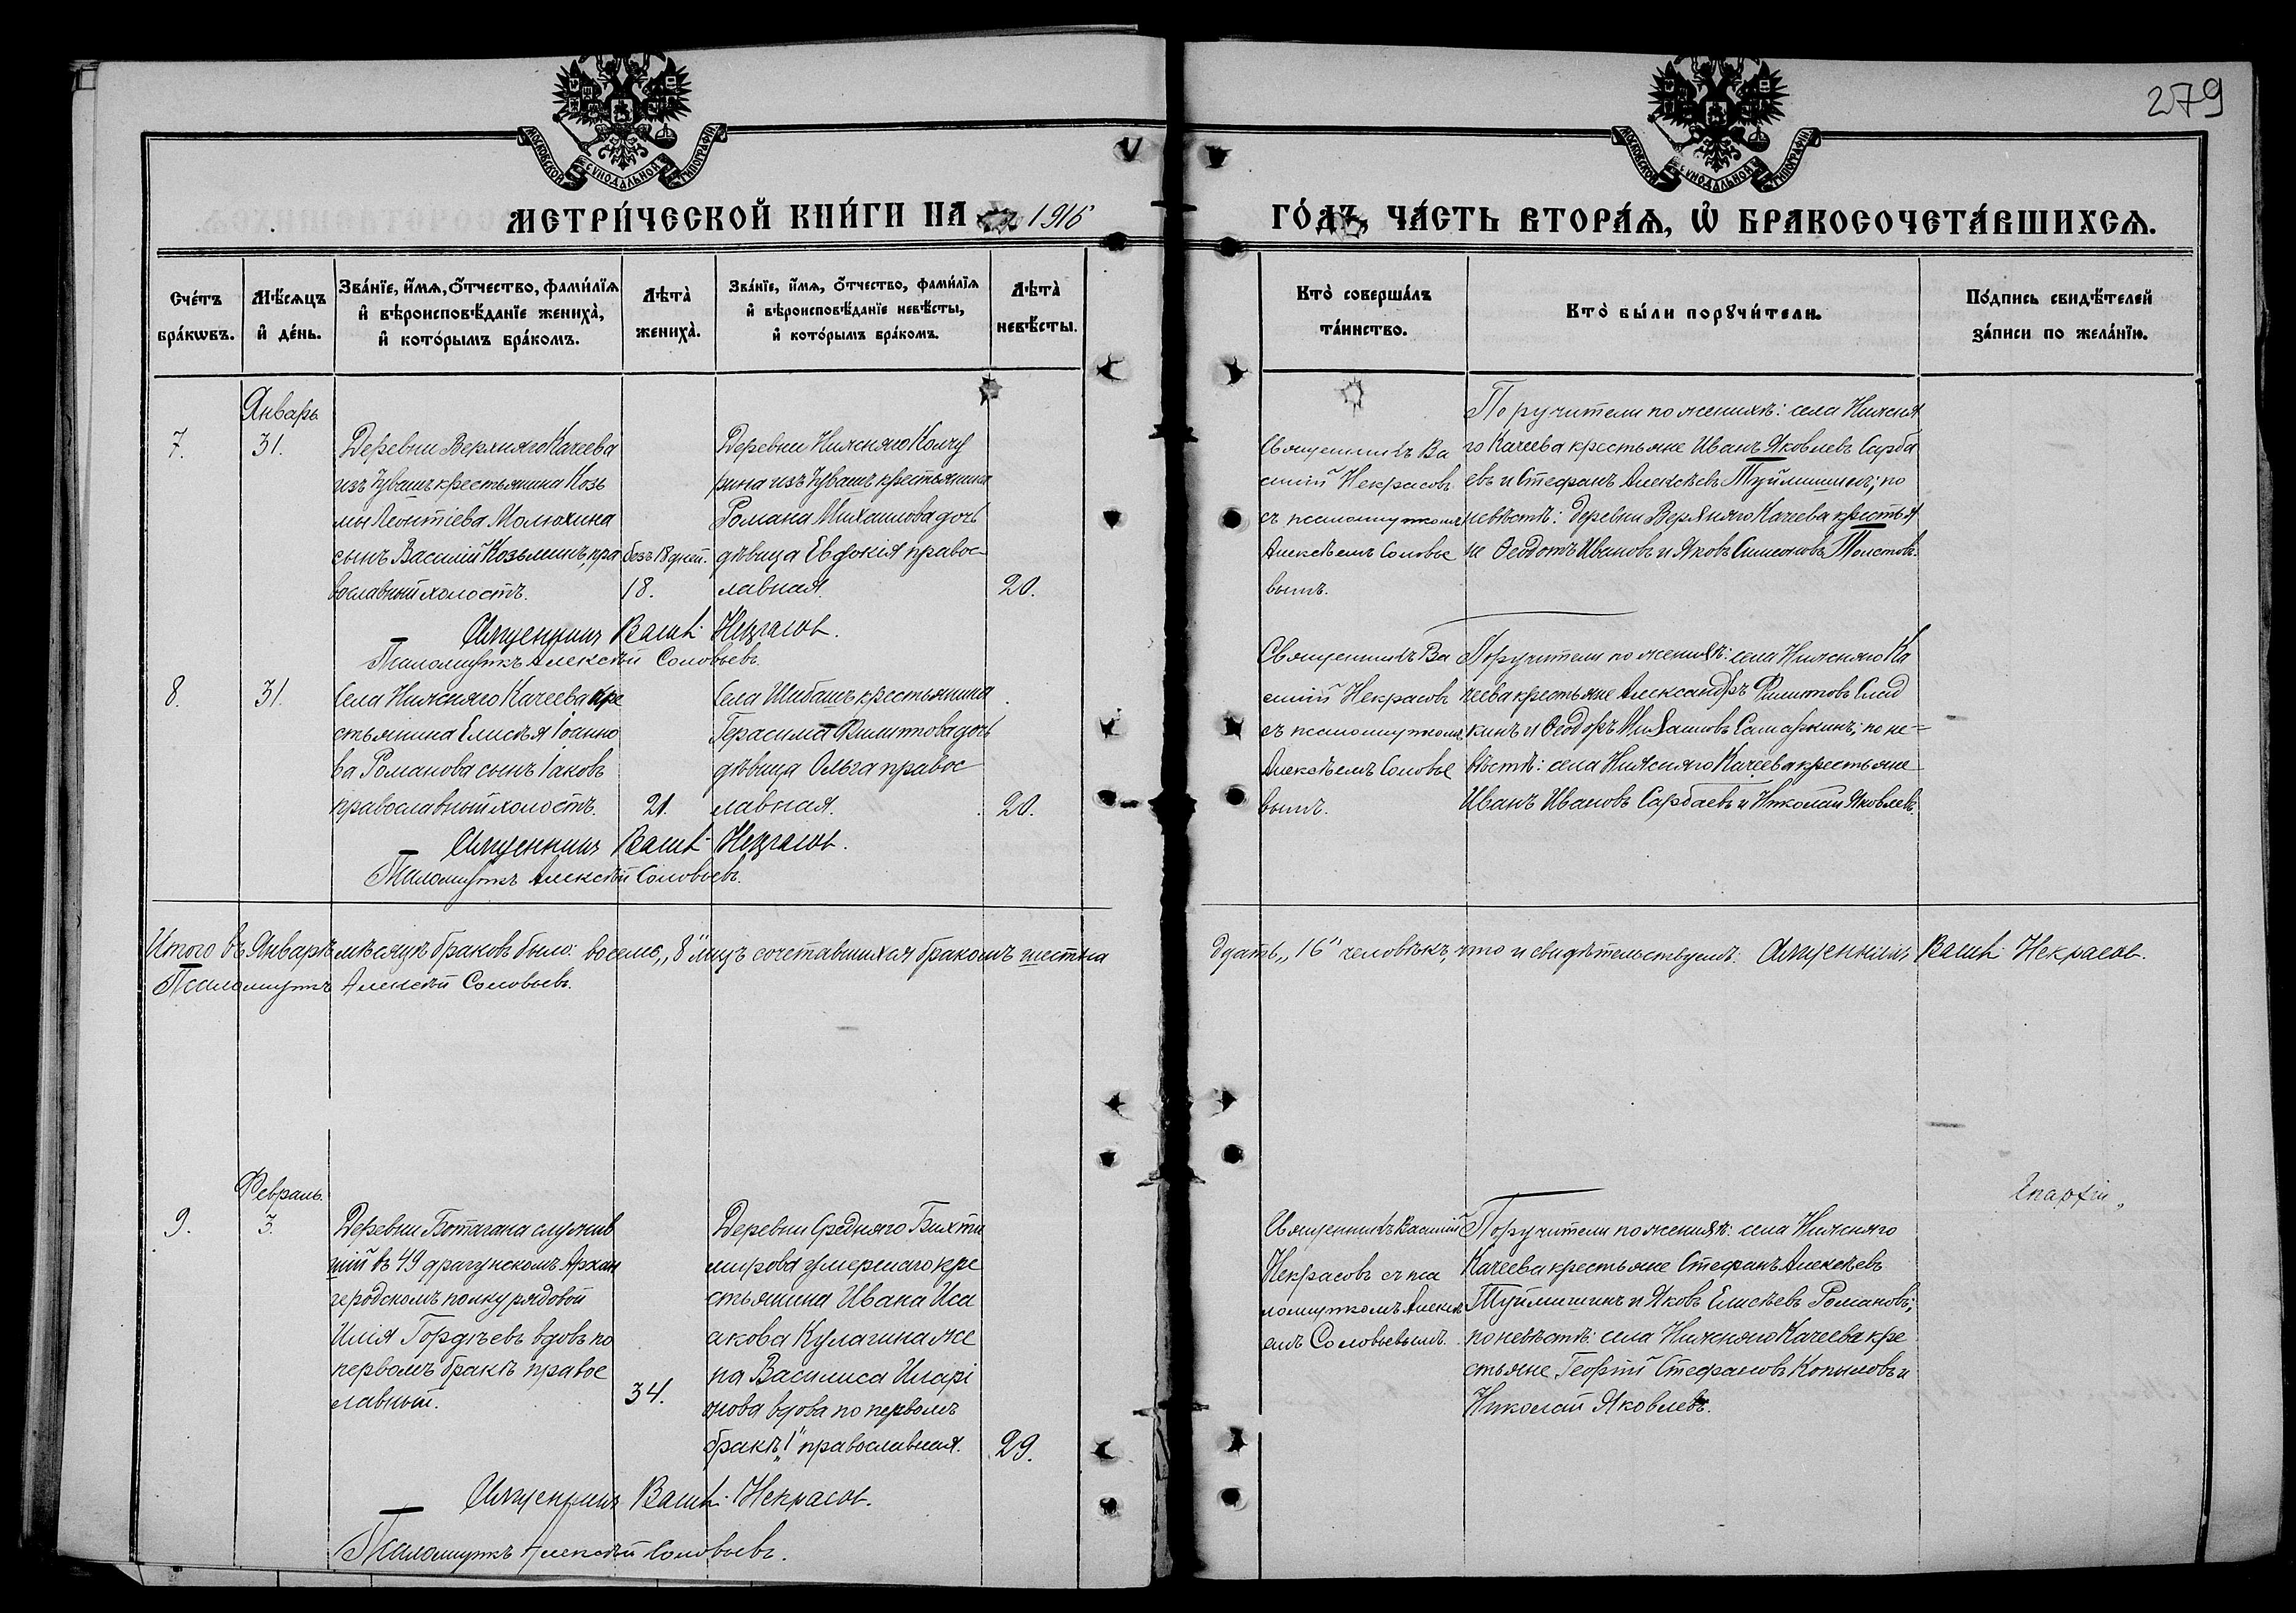 279
МОСКОВСКОЙ СУНОДАЛЬНОЙ ТИПОГРАФІИ
МОСКОВСКОЙ СУНОДАЛЬНОЙ ТИПОГРАФІИ
МЕТРИ́ЧЕСКОЙ КНИ́ГИ НА 1916
ГО́ДЪ, ЧА́СТЬ ВТОРА́Ѧ, Ѽ БРАКОСОЧЕТА́ВШИХСѦ.
Сче́тъ бра́кѡвъ.
Мѣ́сѧцъ и де́нь.
Зва́нїе, и́мѧ, о́тчество, фами́лїѧ
и вѣроисповѣ́данїе жениха̀,
и кото́рымъ бра́комъ.
Лѣта̀ жениха̀.
Зва́нїе, и́мѧ, о́тчество, фами́лїѧ
и вѣроисповѣ́данїе невѣ́сты,
и кото́рымъ бра́комъ.
Лѣта̀ невѣ́сты.
Кто̀ соверша́лъ
та́инство.
Кто̀ бы́ли порꙋчи́тели.
По́дпись свидѣ́телей
за́писи по жела́нїю.
Январь
7.
31.
Деревни Верхняго Качеева
изъ Чувашъ крестьянина Козь
мы Леонтіева Молюкина
сынъ Василій Козьминъ, пра
вославный холостъ.
безъ 18 дней.
18.
Деревни Нижняго Колчу
рина изъ Чувашъ крестьянина
Романа Михаилова дочь
дѣвица Евдокія правос-
лавная.
20.
Священникъ Ва
силій Некрасовъ
съ псаломщикомъ
Алексѣемъ Соловье
вымъ.
Поручители по женихѣ: села Нижня
го Качеева крестьяне Иванъ Яковлевъ Сарба
евъ и Стефанъ Алексѣевъ Туймишинъ; по
невѣстѣ: деревни Верхняго Качеева крестья
не Ѳеодотъ Ивановъ и Яковъ Симеоновъ Толстовъ.
Священникъ Васил. Некрасов.
Псаломщикъ Алексѣй Соловьевъ.
8.
31.
Села Нижняго Качеева кре
стьянина Елисѣя Іоанно
ва Романова сынъ Іаковъ
православный холостъ.
21.
Села Шибашъ крестьянина
Герасима Филиппова дочь
дѣвица Ольга правос
лавная.
20.
Священникъ Ва
силій Некрасовъ
съ псаломщикомъ
Алексѣемъ Соловье
вымъ.
Поручители по женихѣ: села Нижняго Ка
чеева крестьяне Александръ Филиповъ Слад
кинъ и Ѳеодоръ Михаиловъ Самаркинъ; по не-
вѣстѣ: села Нижняго Качеева крестьяне
Иванъ Ивановъ Сарбаевъ и Николай Яковлевъ.
Священникъ Васил. Некрасов.
Псаломщикъ Алексѣй Соловьевъ.
Итого въ Январѣ мѣсяцѣ браковъ было: восемь „8“ лицъ сочетавшихся бракомъ шестна
дцать „16“ человѣкъ, что и свидѣтельствуемъ: Священникъ Васил. Некрасов.
Псаломщикъ Алексѣй Соловьевъ.
Февраль.
9.
3.
Деревни Ботагана служив
шій въ 49 драгунскомъ Архан
геродскомъ полку рядовой
Илія Гордѣевъ вдовъ по
первомъ бракѣ правос
лавный.
34.
Деревни Средняго Бихти
мирова умершаго кре
стьянина Ивана Иса
акова Кулагина же
на Василиса Иларі
онова вдова по первомъ
бракѣ „1“ православная.
29.
Священникъ Василій
Некрасовъ съ пса
ломщикомъ Алексѣ
емъ Соловьевымъ.
Поручители по женихѣ: села Нижняго
Качеева крестьяне Стефанъ Алексѣевъ
Туймишинъ и Яковъ Елисѣевъ Романовъ;
по невѣстѣ: села Нижняго Качеева кре
стьяне Георгій Стефановъ Копыловъ и
Николай Яковлевъ.
Священникъ Васил. Некрасов.
Псаломщикъ Алексѣй Соловьевъ.